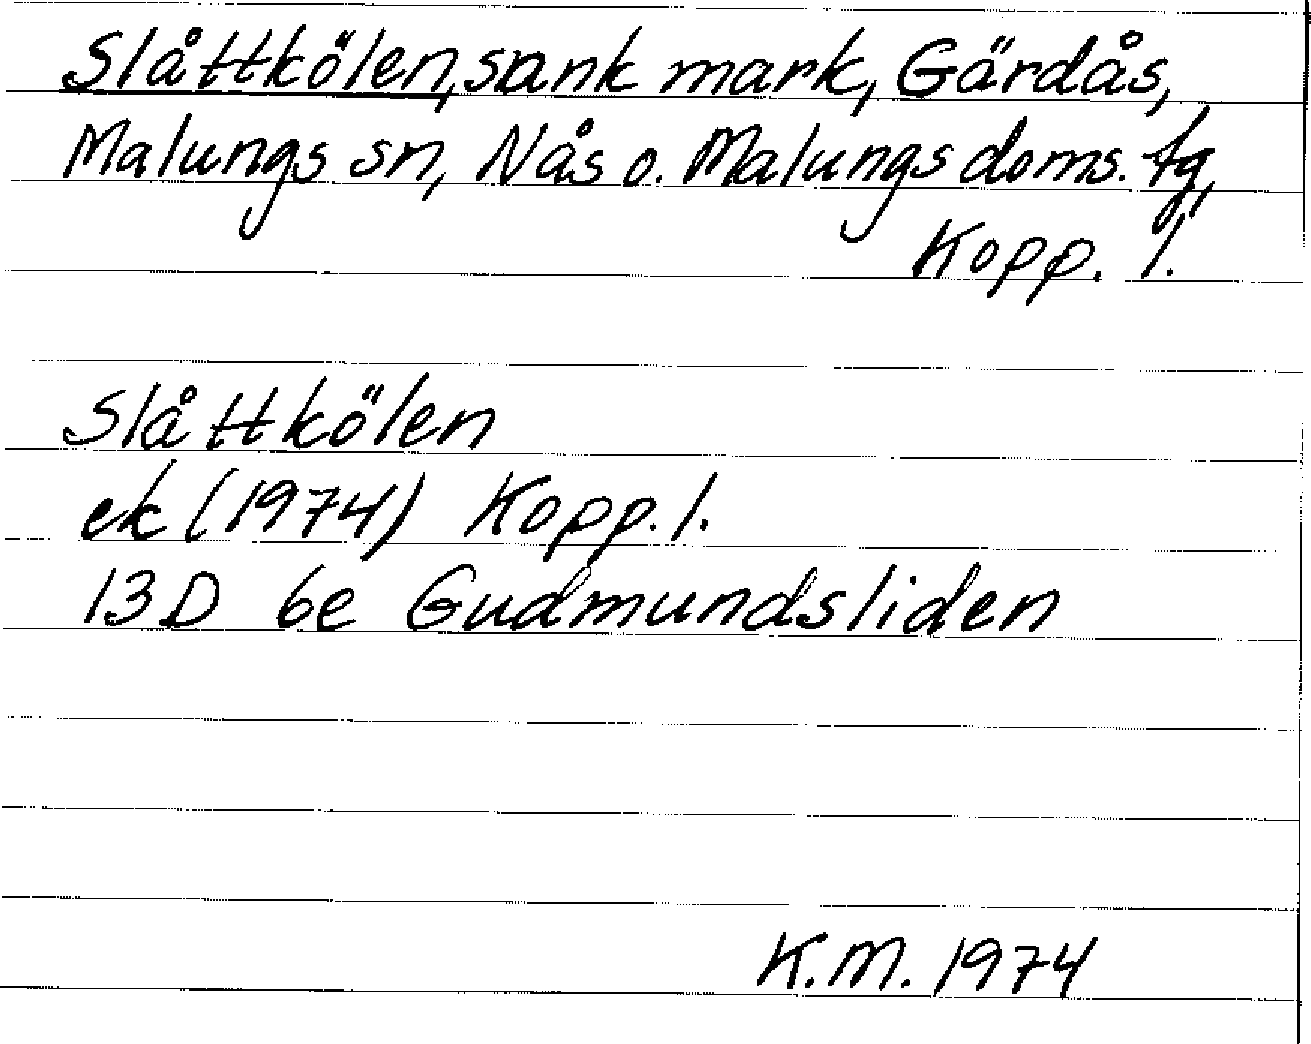 Slåttkölen, sank mark, Gärdås,
Malungs sn, Nås o. Malungs doms. tg,
Kopp. l.
Slåttkölen
ek (1974) Kopp. l.
13D 6e Gudmundsliden
K.M. 1974